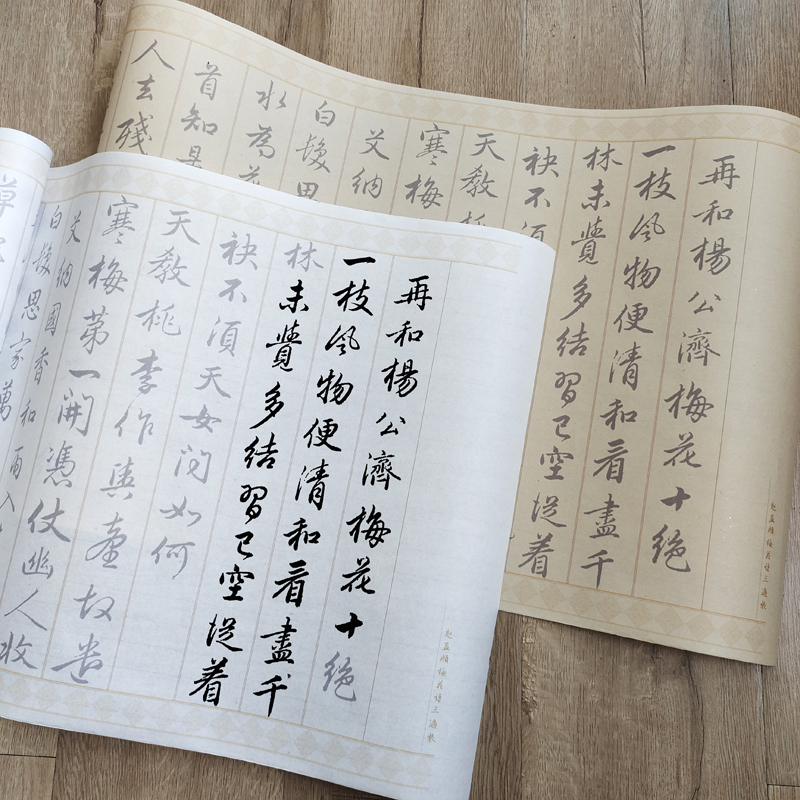 再和楊公濟梅花十絕
一枝風物便清和看盡千
林未覺多結習已空從着
袂不須天女問如何
天教桃李作輿臺故遣
寒梅第一開憑仗幽人收
艾納國香和雨入
白髮思家萬
再和楊公濟梅花十絕
一枝風物便清和看盡千
林未覺多結習已空從着
袂不須
天教桃
寒梅
艾納
白髮思
水為
首知是
人去殘